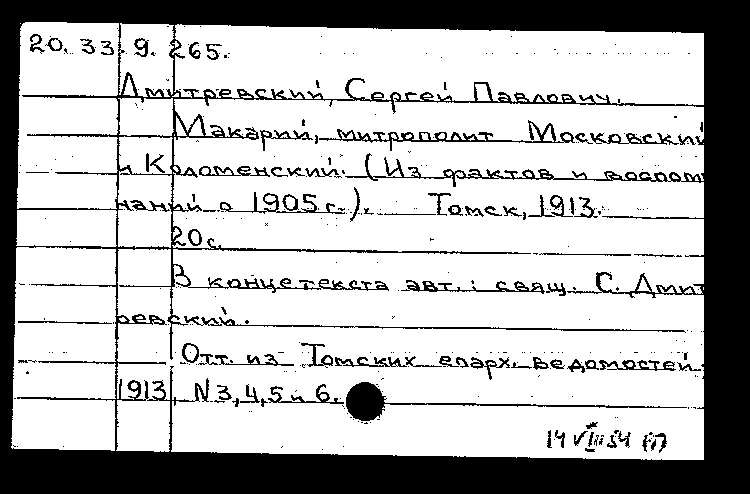 20. 33. 9. 265.
Дмитревский, Сергей Павлович.
Макарий, митрополит Московский
и Коломенский. (Из фактов и воспоми
наний о 1905 г.). Томск, 1913.
20 с.
В конце текста авт.: свящ. С. Дмит
ревский.
Отт. из Томских епарх. ведомостей,
1913, N 3, 4, 5 и 6.
14 VIII 54